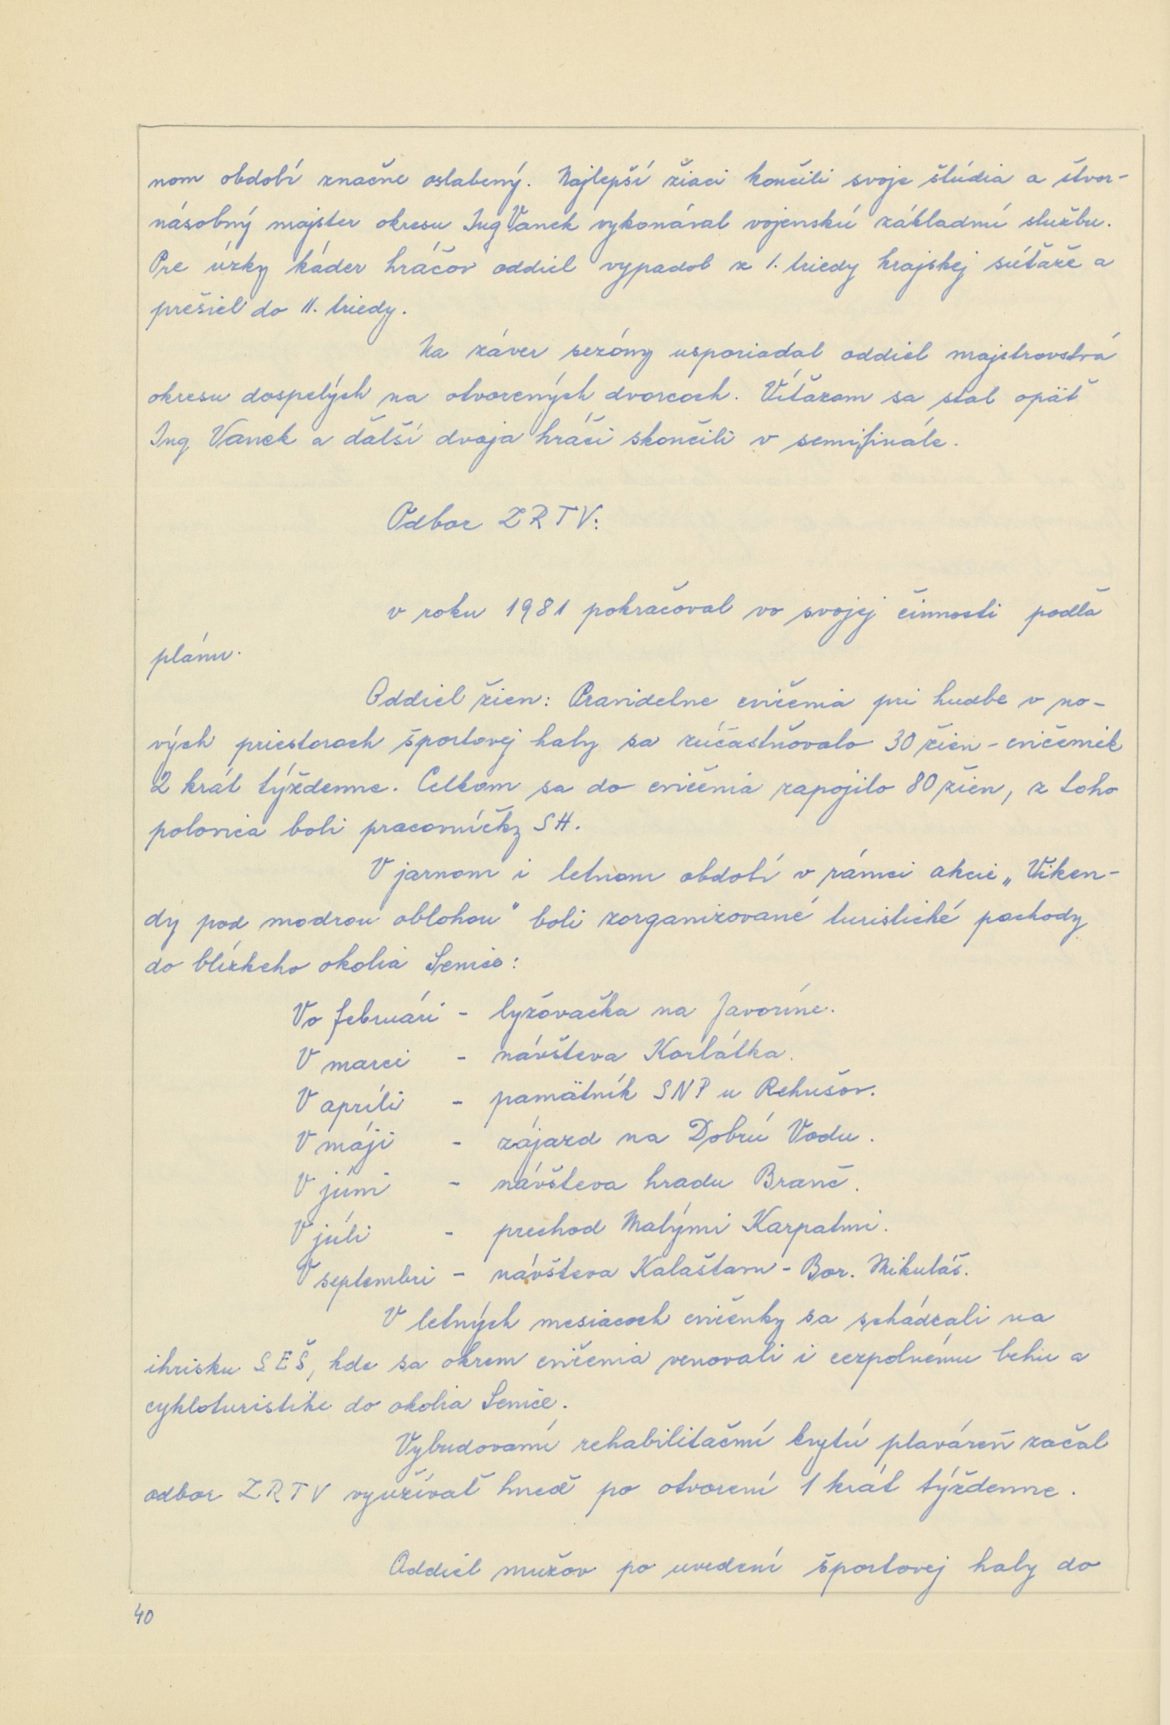 nom období značne oslabený. Najlepší žiaci končili svoje štúdia a štvor-
násobný majster okresu Ing Vanek vykonával vojenskú základnú službu.
Pre úzky káder hráčov oddiel vypadol z 1. triedy krajskej súťaže a
prešiel do II. triedy.
Na záver sezóny usporiadal oddiel majstrovstvá
okresu dospelých na otvorených dvorcoch. Víťazom sa stal opäť
Ing Vanek a ďalší dvaja hráči skončili v semifinále.
Odbor ZRTV:
v roku 1981 pokračoval vo svojej činnosti podľa
plánu.
Oddiel žien: Pravidelne cvičenia pri hudbe v no-
vých priestoroch športovej haly sa zúčastňovalo 30 žien - cvičeniek
2 krát týždenne. Celkom sa do cvičenia zapojilo 80 žien, z toho
polovica boli pracovníčky SH.
V jarnom i letnom období v rámci akcie „Víken-
dy pod modrou oblohou" boli zorganizované turistické pochody
do blízkeho okolia Senice:
Vo februári - lyžovačka na Javorine.
V marci - návšteva Korlátka.
V apríli - pamätník SNP u Rehušov.
V máji - zájazd na Dobrú Vodu.
V júni - návšteva hradu Branč.
V júli - prechod Malými Karpatmi.
V septembri - návšteva Kalaštavu - Bor. Mikuláš.
V letných mesiacoch cvičenky sa schádzali na
ihrisku SEŠ, kde sa okrem cvičenia venovali i cezpoľnému behu a
cykloturistike do okolia Senice.
Vybudovanú rehabilitačnú krytú plaváreň začal
odbor ZRTV využívať hneď po otvorení 1 krát týždenne.
Oddiel mužov po uvedení športovej haly do
40